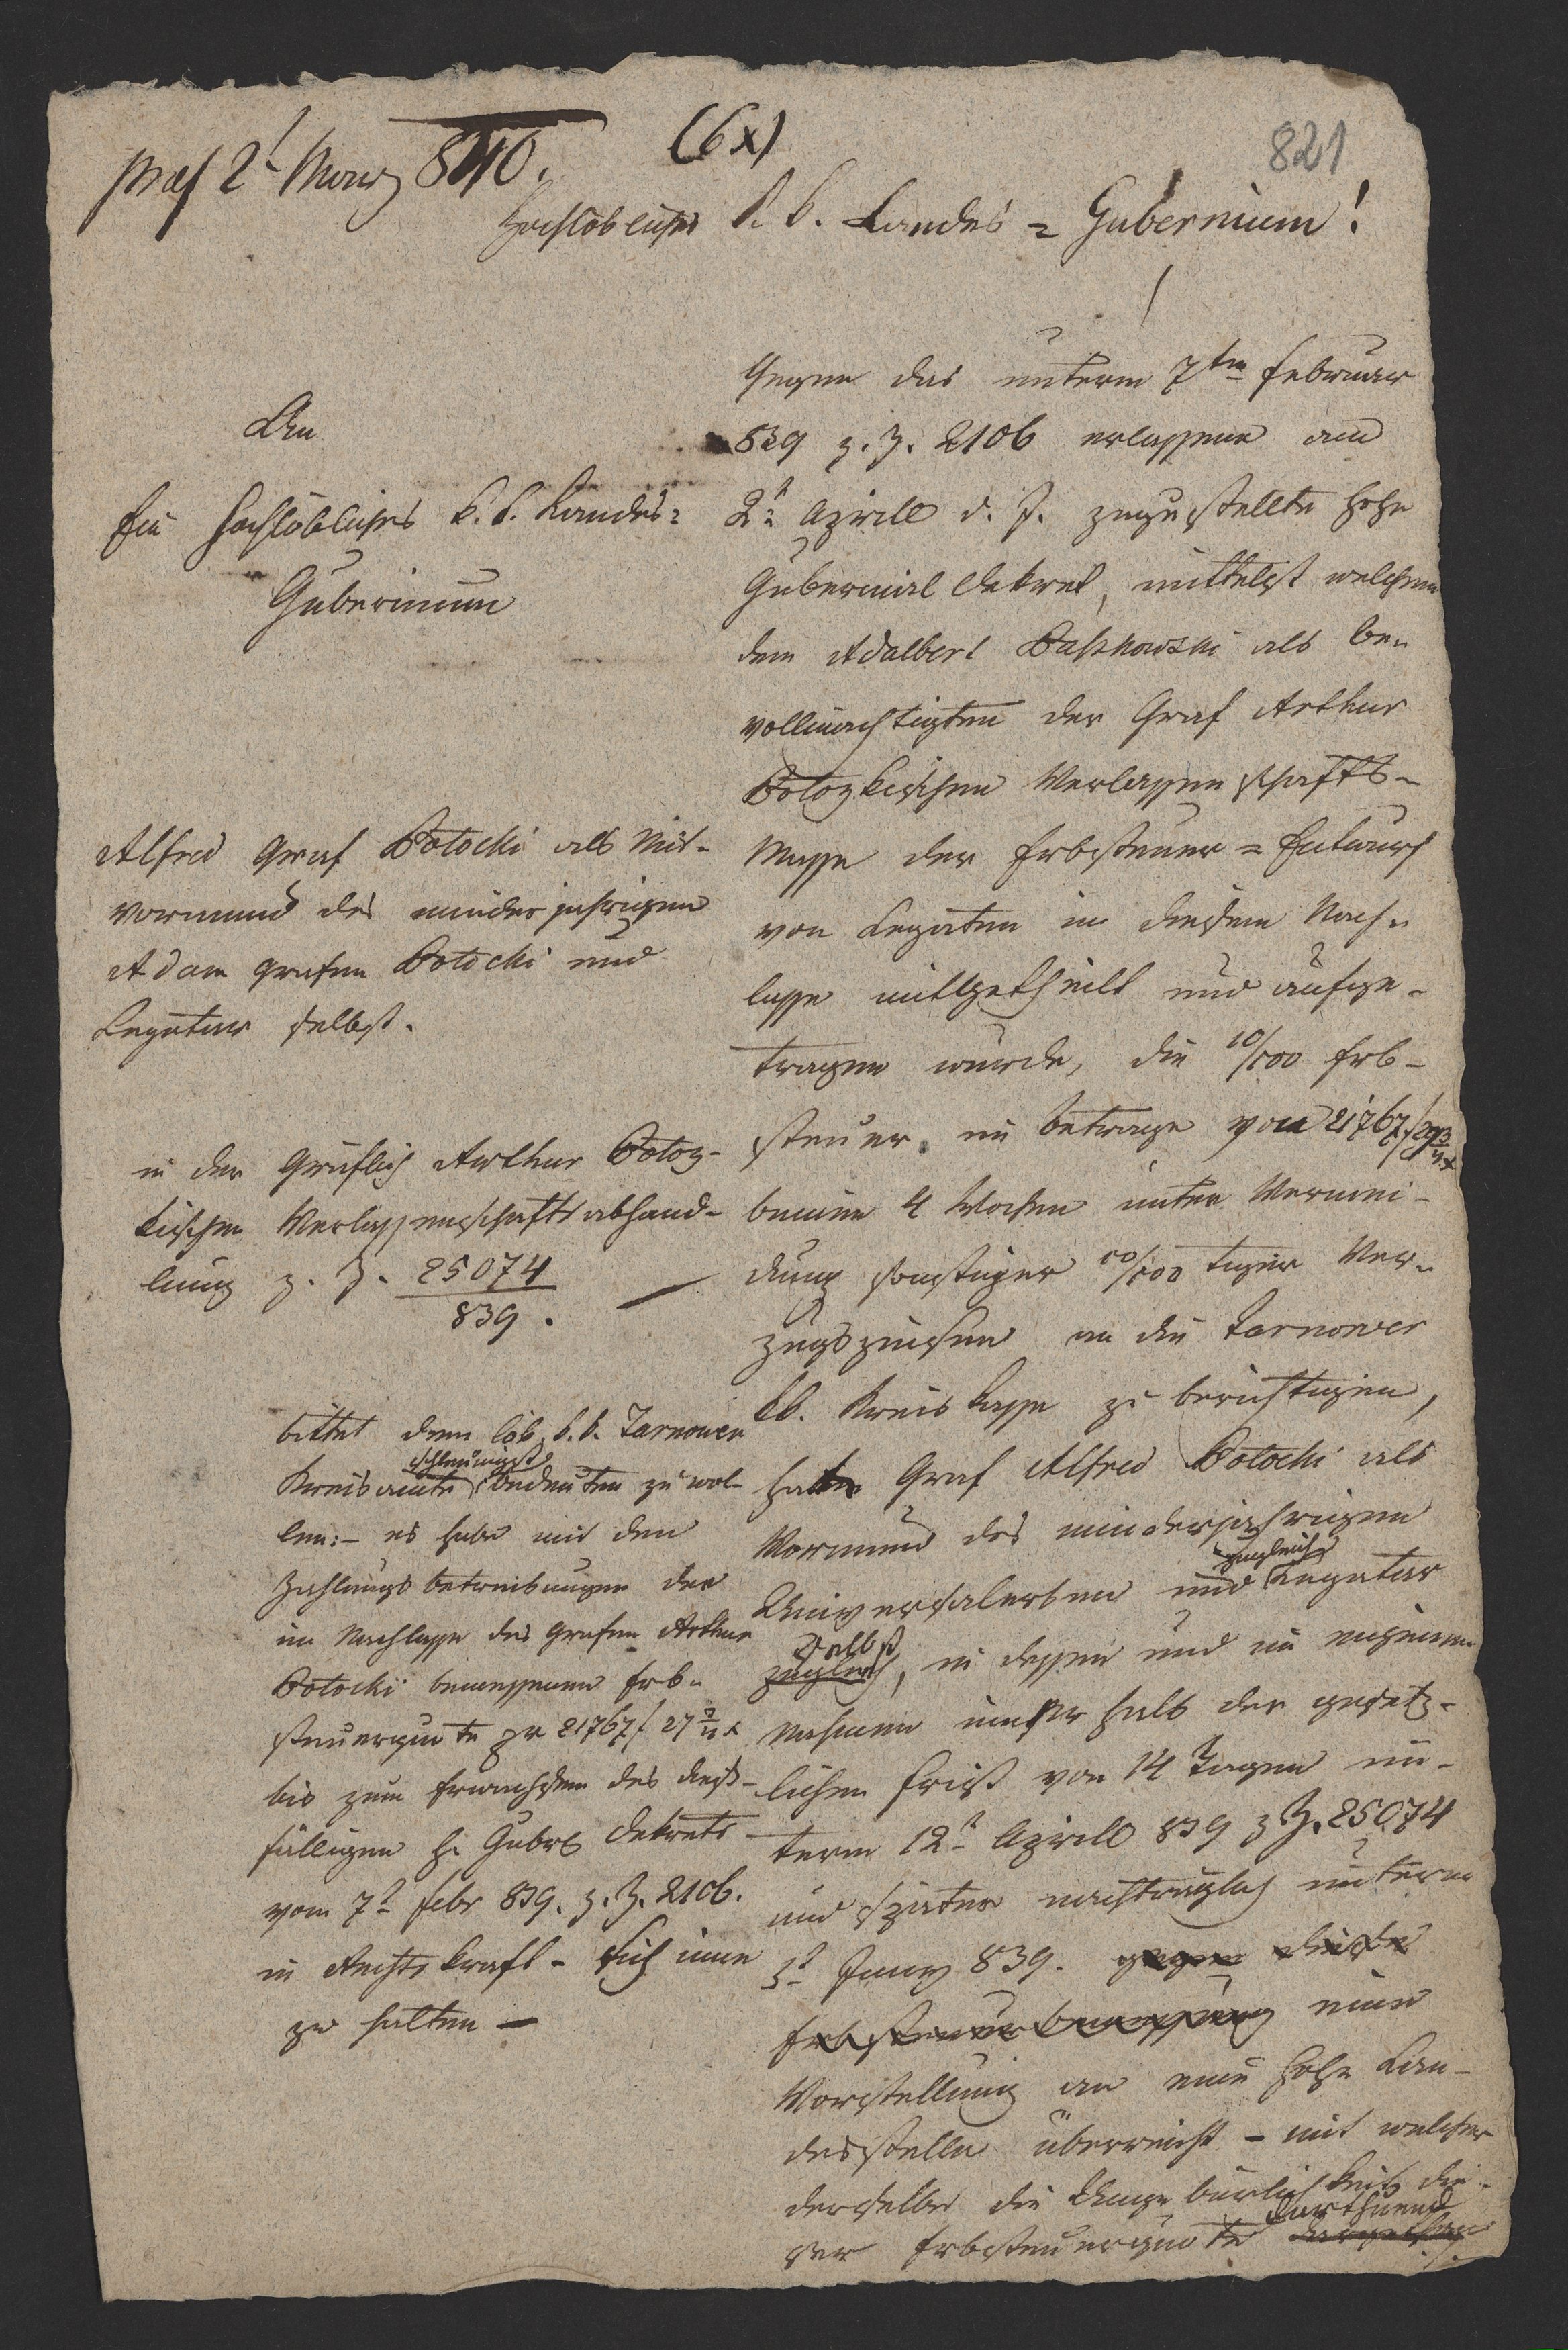 821
(6x)
praes 2t Marz 840.
Hochlöbliches k. k. Landes = Gubernium!
An
Ein Hochlöbliches k. k. Landes=
Gubernium
Alfred Graf Potocki als Mit-
vormund des minderjährigen
Adam Grafen Potocki und
Legatar selbst.
in der Gräflich Arthur Potoz-
kischen Verlassenschaftsabhand-
lung z. Z. 25074
839.
bittet dem löb. k. k. Tarnower
schleunigst
Kreisamte bedeuten zu wol-
len:- es habe mit den
Zahlungsbetreibungen der
im Nachlasse des Grafen Arthur
Potocki bemessenen Erb-
steuerquote pr 21767 f 27 3/4 x
bis zum Erwachsen des dieß-
fälligen h. Gubral Dekrets
vom 7t Febr 839. z. Z. 2106.
in Rechtskraft - sich inne
zu halten —
Gegen das unterm 7ten Februar
839 z. Z. 2106 erlassene am
2t April d. J. zugestellte hohe
Gubernial Dekret, mittelst welchem
dem Adalbert Paszkowski als be-
vollmächtigten der Graf Arthur
Potozkischen Verlassenschafts-
Masse der Erbsteuer = Entwurf
von Legaten in diesem Nach-
lasse mittgetheilt und aufge-
tragen wurde, die 10/100 Erb-
steuer im Betrage von 21767 f 27 3/4 x
binnen 4 Wochen unter Vermei-
dung sonstiger 10/100 tiger Ver-
zugszinsen an die Tarnower
kk. Kreiskasse zu berichtigen,
hatte Graf Alfred Potocki als
Vormund des minderjährigen
zugleich
Universalerben und Legatar
selbst
zugleich, in dessen und im eigenen
Nahmen innerhalb der gesetz-
lichen Frist von 14 Tagen un-
term 12t April 839 z Z. 25074
und später nachträglich unterm
3t Juny 839. gegen diese
Erbsteuerbemessung eine
Vorstellung an eine hohe Lan-
desstelle überreicht - mit welcher
derselbe die Ungebürlichkeit die-
darthuend
ser Erbsteuerquote dargethan